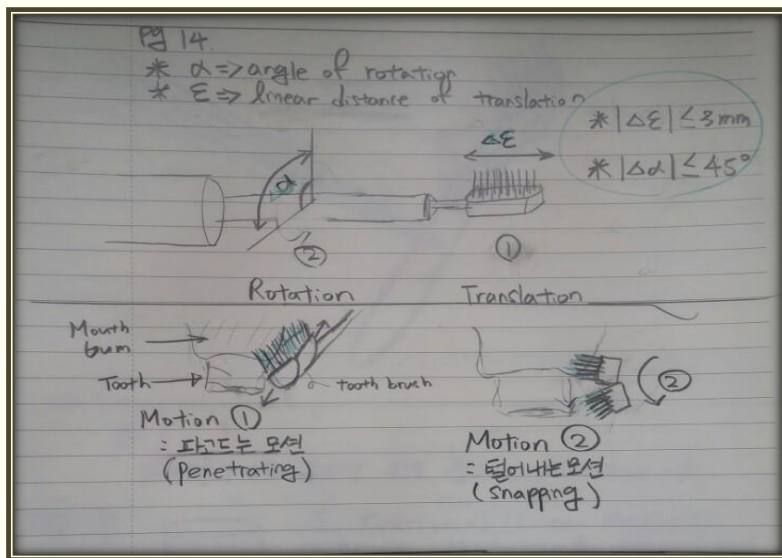 Pg 14.
* α => angle of rotation
* ε => linear distance of translation
* |Δε| ≤ 3mm
* |Δα| ≤ 45°
Δε
α
②
①
Rotation
Translation
Mouth
Gum
Tooth
tooth brush
②
Motion ①
: 파고드는 모션
(penetrating)
Motion ②
: 털어내는 모션
(snapping)